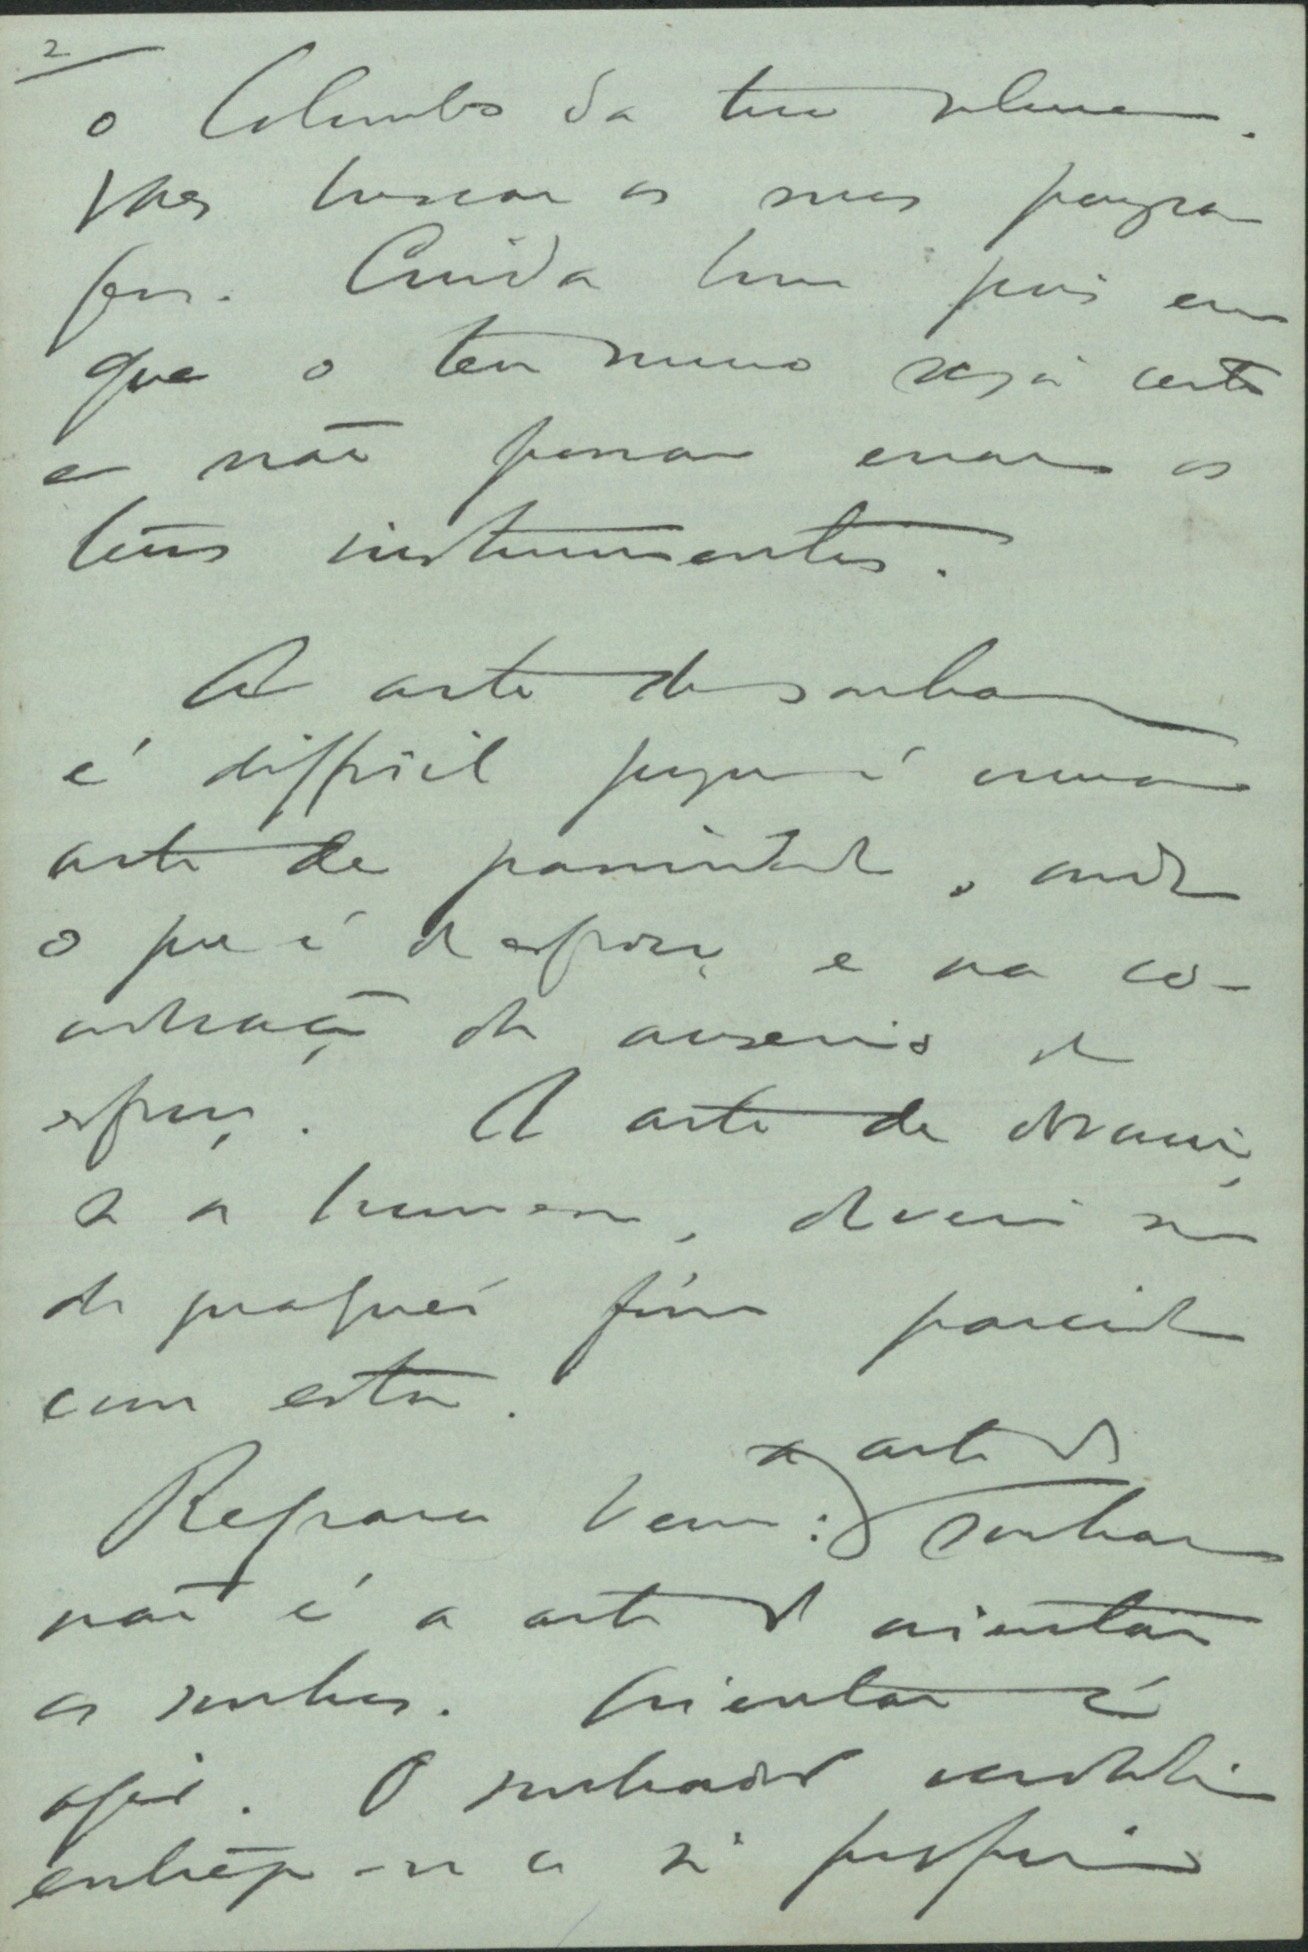 2
o Colombo da tua alma.
Vaes buscar as suas paysa
gens. Cuida bem pois em
que o teu rumo seja certo
e não possam errar os
teus instrumentos.
A arte de sonhar
é difficil porque é uma
arte de passividade, onde
o que é de esforço é na co-
ncentração da ausencia de
esforço. A arte de dormir,
se a houvesse, deveria ser
de qualquér fórma parecida
com esta.
Repara bem: a arte de sonhar
não é a arte de orientar
os sonhos. Orientar é
agir. O sonhador verdadeiro
entrega-se a si proprio